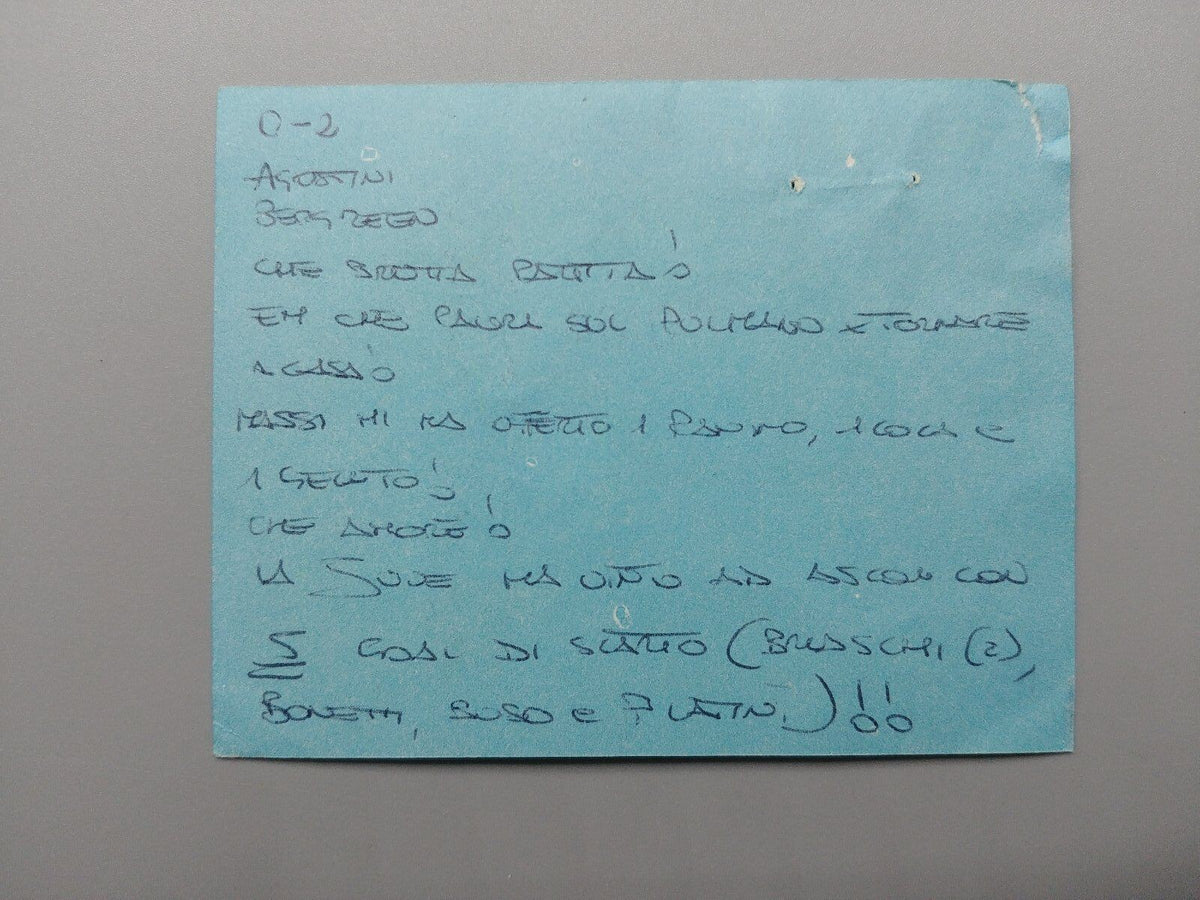 0-2
AGOSTINI
BERGREEN
CHE BRUTTA PARTITA!
EH CHE PAURA SUL PULMANO X TORNARE
A CASA!
MASSI MI HA OFFERTO 1 PANINO, 1 COCA E
1 GELATO!
CHE AMORE!
LA JUVE HA VINTO AD ASCOLI CON
5 GOAL DI SCARTO (BRIASCHI (2),
BONETTI, BUSO E PLATINI)!!